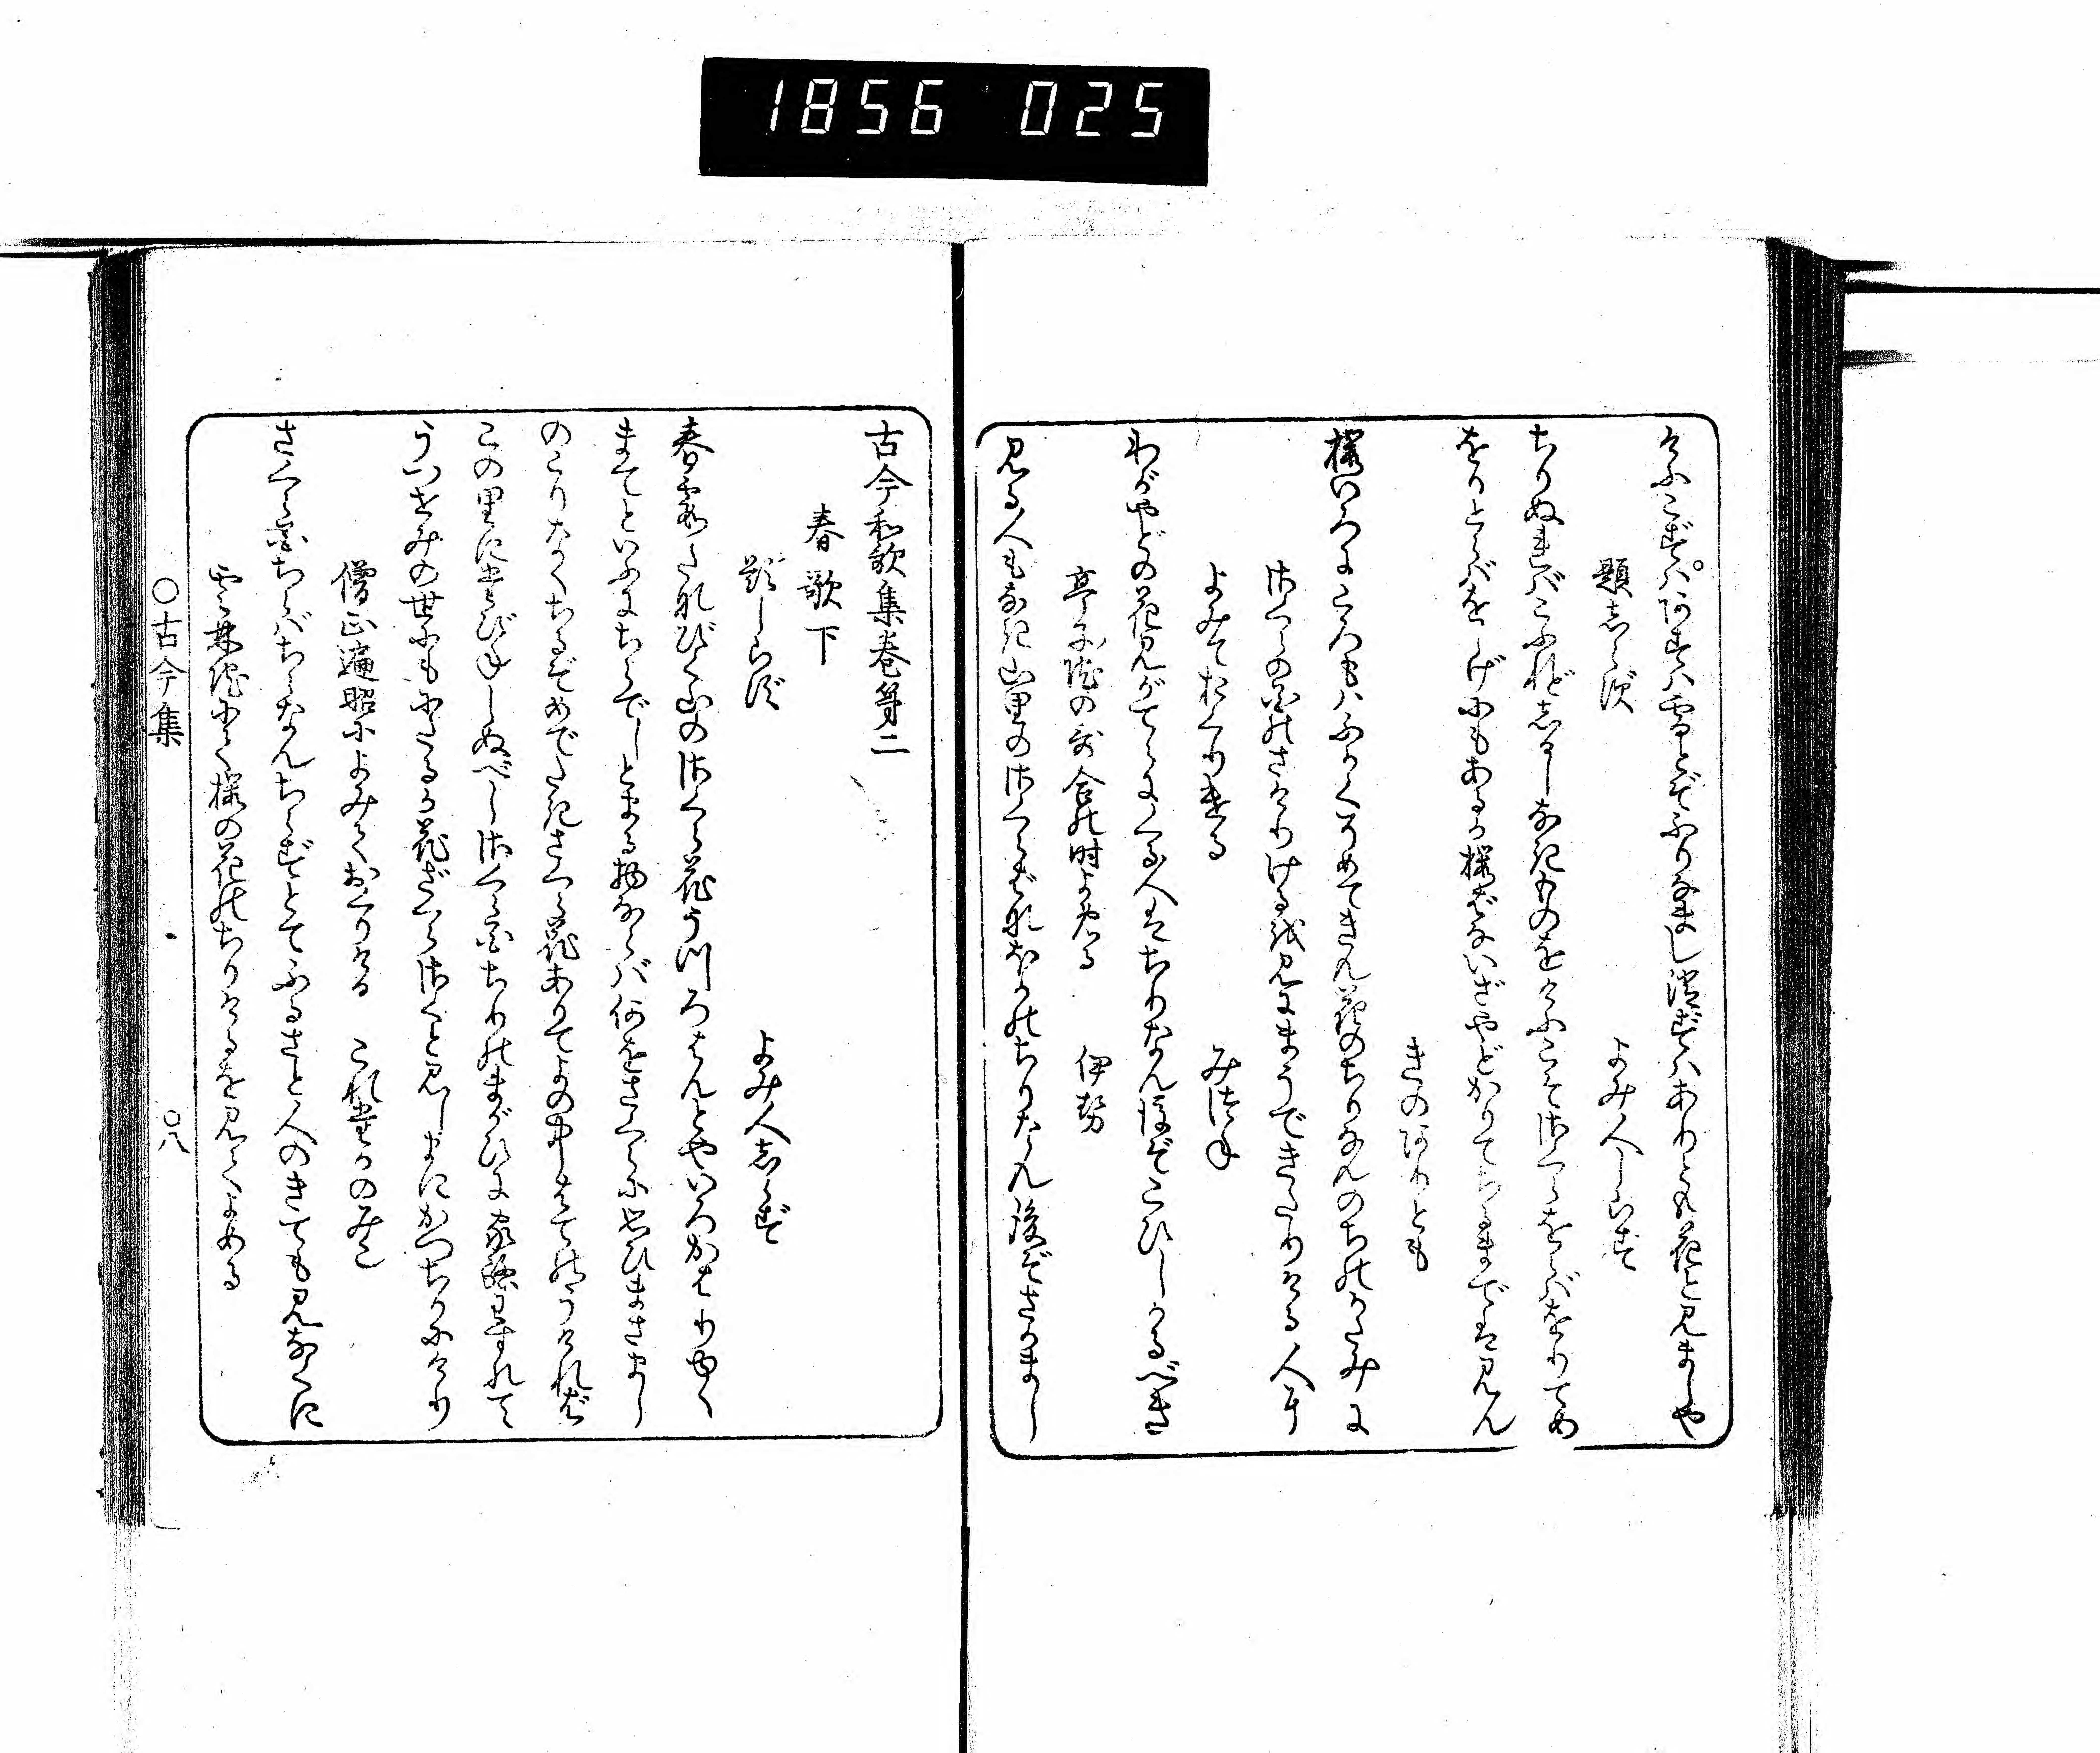 1856 025
けふこずはあすは雪とぞふりなまし消ずはありとも花と見ましや
題しらず　よみ人しらず
ちりぬればこふれどしるしなきものをけふこそさくらをらばをりてめ
をりとらばをしげにもあるか桜花いざやどかりてちるまでは見ん
きのありとも
桜いろにころもはふかくそめてきん花のちりなんのちのかたみに
さくらの花のさけりけるを見にまうできたりける人に
よみておくりける　みつね
わがやどの花見がてらにくる人はちりなん後ぞこひしかるべき
亭子院の哥合の時よめる　伊勢
見る人もなき山里のさくら花ほかのちりなん後ぞさかまし
古今和歌集巻第二
春歌下
題しらず　よみ人しらず
春霞たなびく山のさくら花うつろはんとやいろかはりゆく
まてといふにちらでしとまる物ならば何をさくらに思ひまさまし
のこりなくちるぞめでたきさくら花ありてよの中はてのうければ
この里にたびねしぬべしさくら花ちりのまがひに家路わすれて
うつせみの世にもにたるか花ざくらさくと見しまにかつちりにけり
僧正遍昭によみておくりける　これたかのみこ
さくら花ちらばちらなんちらずとてふるさと人のきても見なくに
雲林院にて桜の花のちりけるを見てよめる
○古今集　○八